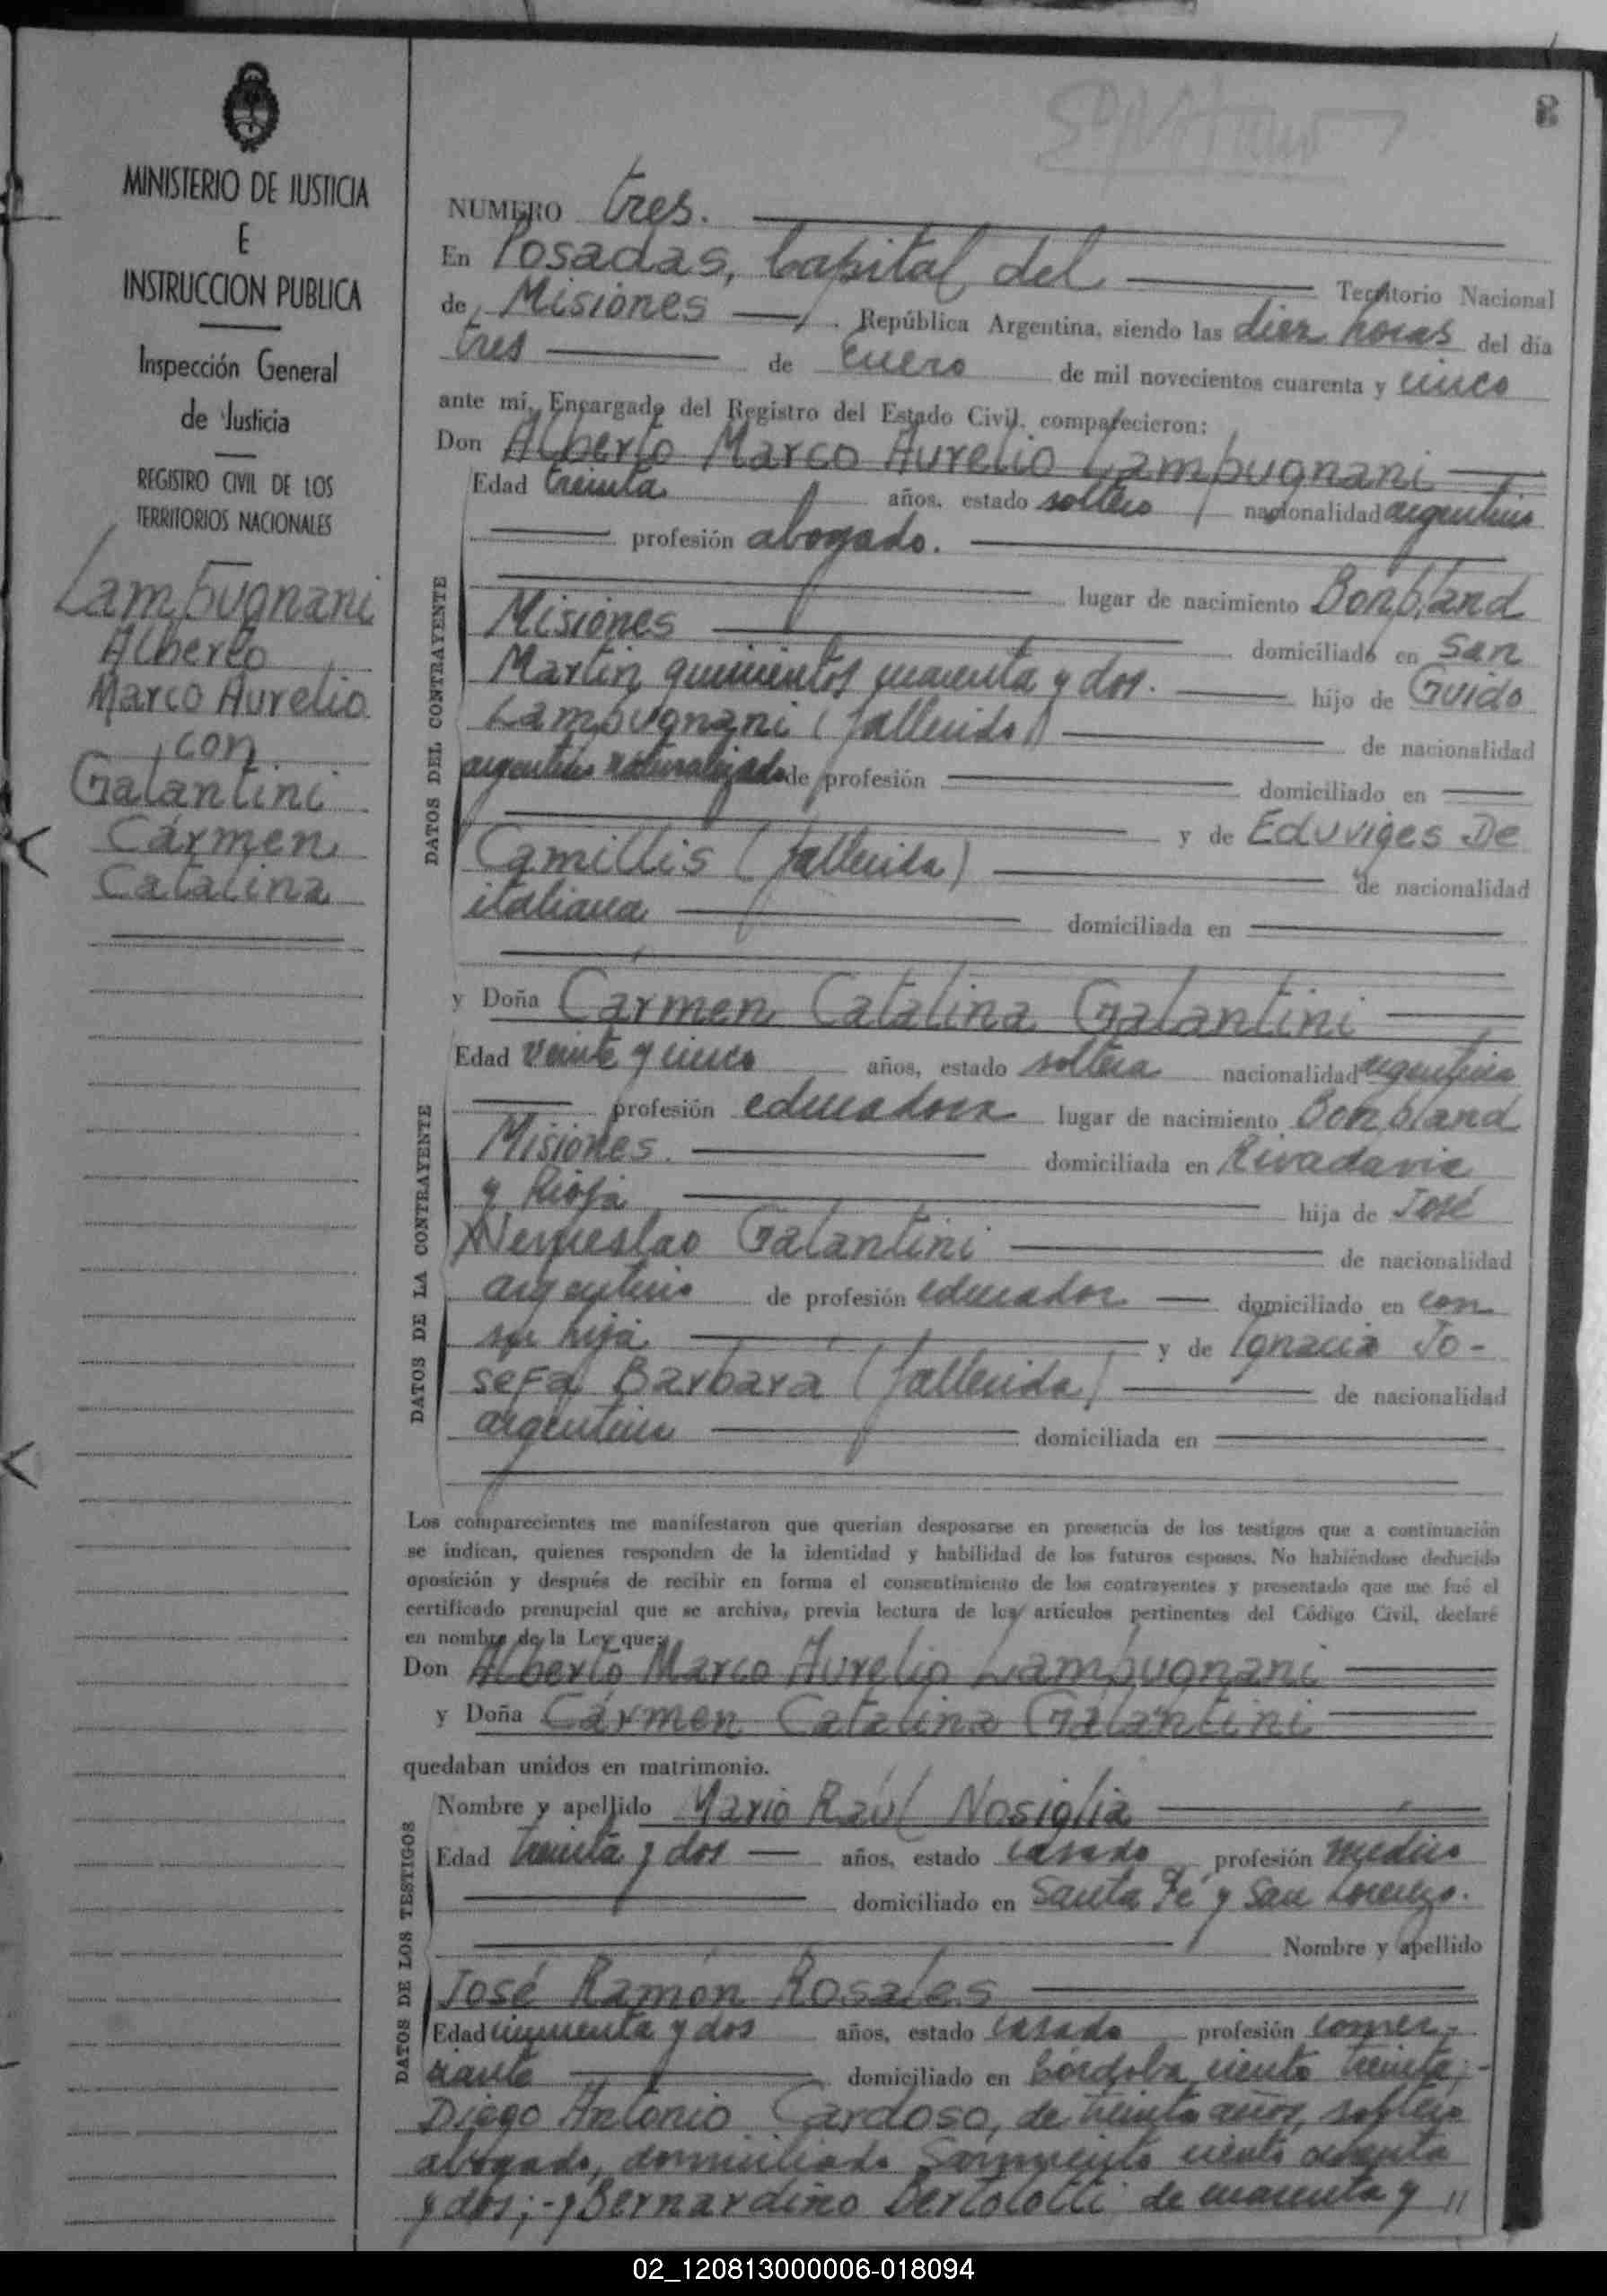 8
MINISTERIO DE JUSTICIA
E
INSTRUCCION PUBLICA
Inspección General
de Justicia
REGISTRO CIVIL DE LOS
TERRITORIOS NACIONALES
Lampugnani
Alberto
Marco Aurelio
con
Galantini
Cármen
Catalina
NUMERO tres.
En Posadas, Capital del Territorio Nacional
de Misiones República Argentina, siendo las diez horas del día
tres de enero de mil novecientos cuarenta y cinco
ante mí, Encargado del Registro del Estado Civil, comparecieron:
Don Alberto Marco Aurelio Lampugnani
Edad treinta años, estado soltero nacionalidad argentino
profesión abogado.
DATOS DEL CONTRAYENTE
lugar de nacimiento Bonpland
Misiones domiciliado en San
Martin quinientos cuarenta y dos. hijo de Guido
Lampugnani (fallecido) de nacionalidad
argentino naturalizado de profesión domiciliado en
y de Eduviges De
Camillis (fallecida) de nacionalidad
italiana domiciliada en
y Doña Cármen Catalina Galantini
Edad veinte y cinco años, estado soltera nacionalidad argentina
profesión educadora lugar de nacimiento Bonpland
DATOS DE LA CONTRAYENTE
Misiones. domiciliada en Rivadavia
y Rioja hija de José
Wenceslao Galantini de nacionalidad
argentino de profesión educador domiciliado en con
su hija y de Ignacia Jo-
sefa Barbara (fallecida) de nacionalidad
argentina domiciliada en
Los comparecientes me manifestaron que querían desposarse en presencia de los testigos que a continuación
se indican, quienes responden de la identidad y habilidad de los futuros esposos. No habiéndose deducido
oposición y después de recibir en forma el consentimiento de los contrayentes y presentado que me fué el
certificado prenupcial que se archiva, previa lectura de los artículos pertinentes del Código Civil, declaré
en nombre de la Ley que:
Don Alberto Marco Aurelio Lampugnani
y Doña Cármen Catalina Galantini
quedaban unidos en matrimonio.
DATOS DE LOS TESTIGOS
Nombre y apellido Mario Raúl Nosiglia
Edad treinta y dos años, estado casado profesión medico
domiciliado en Santa Fé y San Lorenzo.
Nombre y apellido
José Ramón Rosales
Edad cincuenta y dos años, estado casado profesión comer-
ciante domiciliado en Córdoba ciento treinta;-
Diego Antonio Cardoso, de treinta años, soltero
abogado, domiciliado Sarmiento ciento ochenta
y dos;- y Bernardino Bertolotti de cuarenta y //
02_120813000006-018094